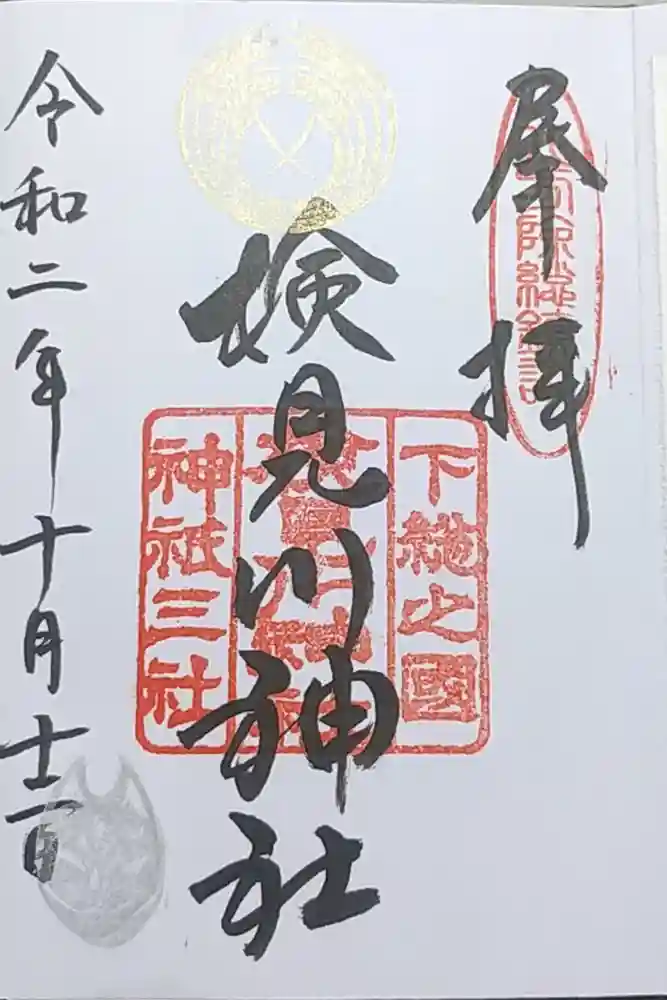 奉拝
下総之國
検見川神社
神祇三社
令和二年十月十二日